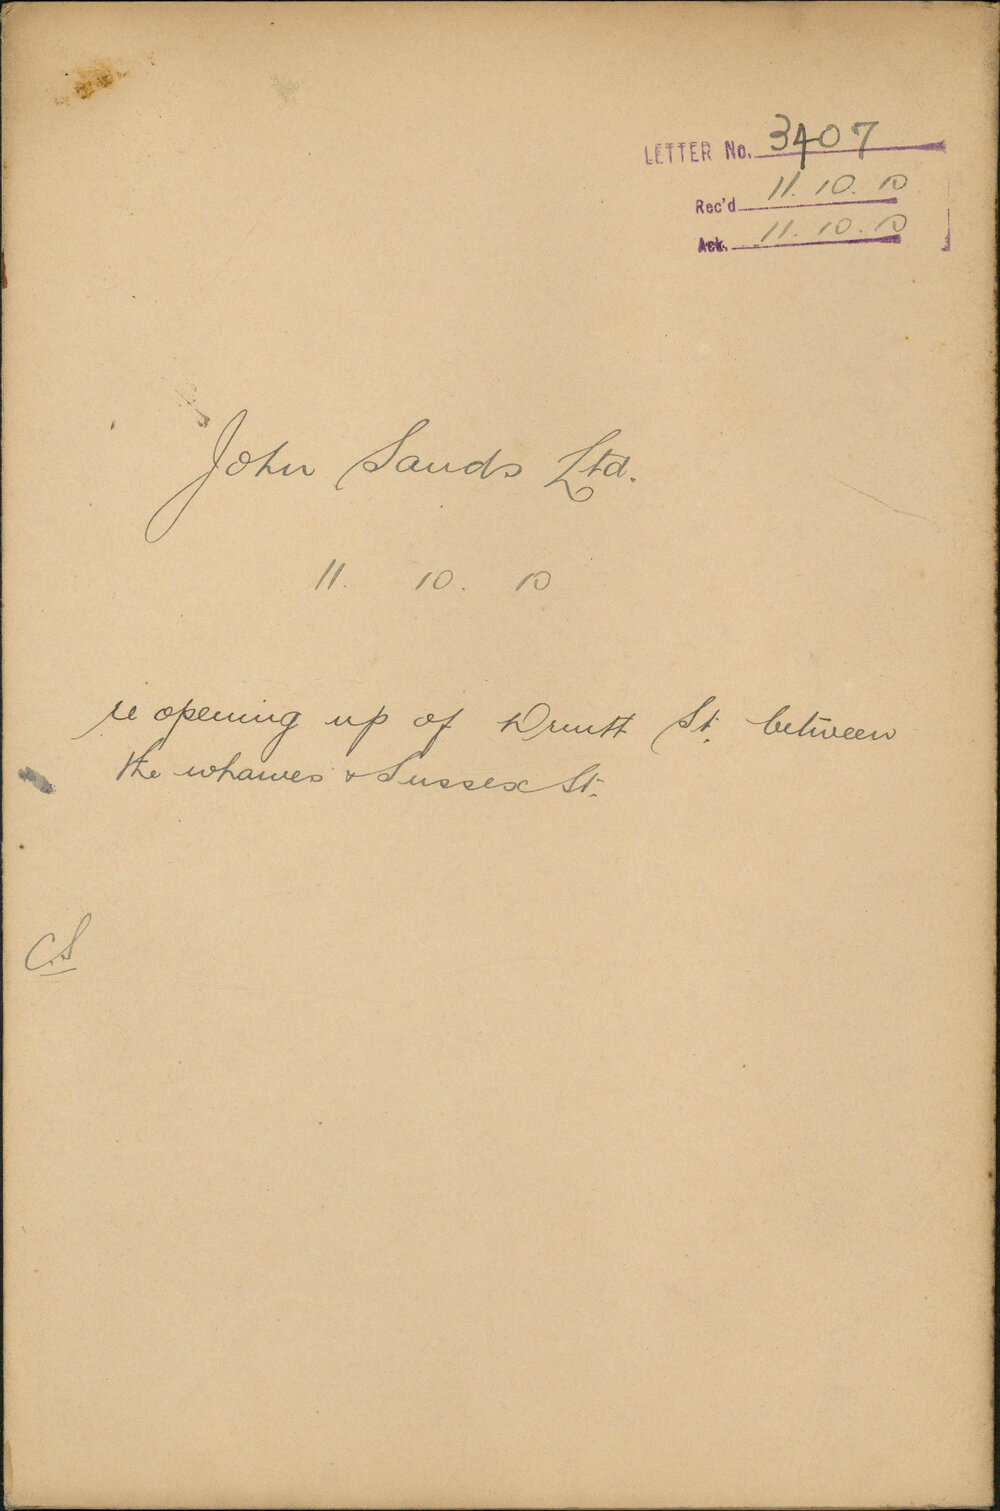 LETTER No. 3407
Rec'd 11.10.10
Ack. 11.10.10
John Sands Ltd.
11. 10. 10
re opening up of Druitt St. between
the wharves & Sussex St.
C.S